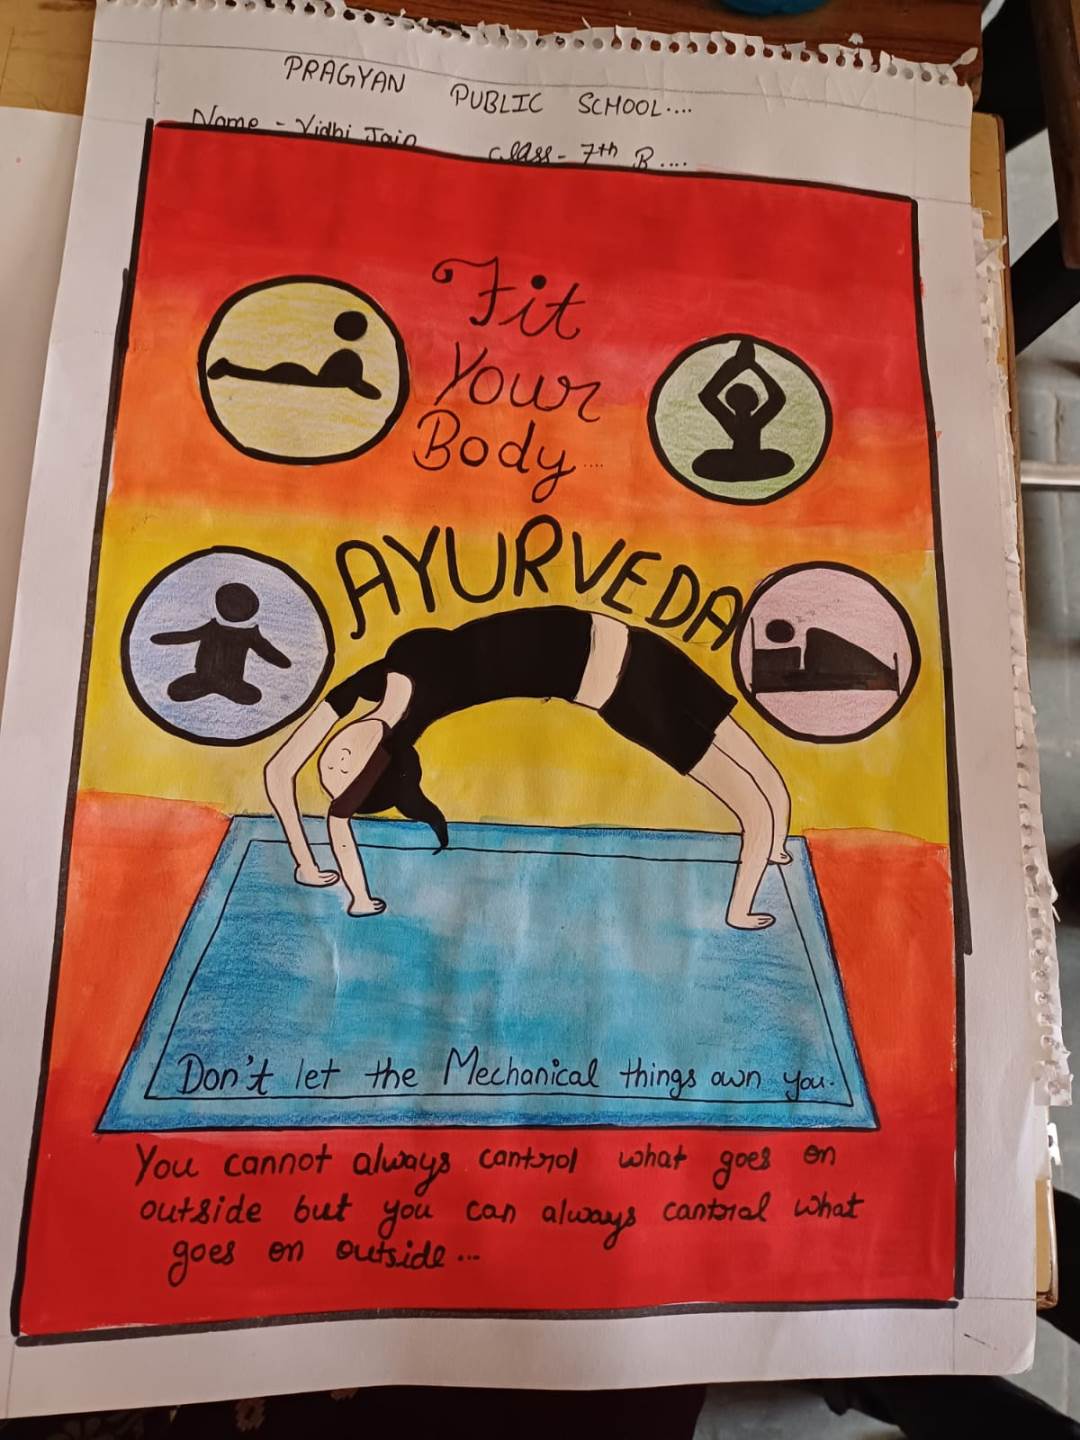 PRAGYAN PUBLIC SCHOOL....
Name - Vidhi Jain Class - 7th B....
Fit
Your
Body....
AYURVEDA
Don't let the Mechanical things own you.
You cannot always cantrol what goes on
outside but you can always cantrol what
goes on outside...